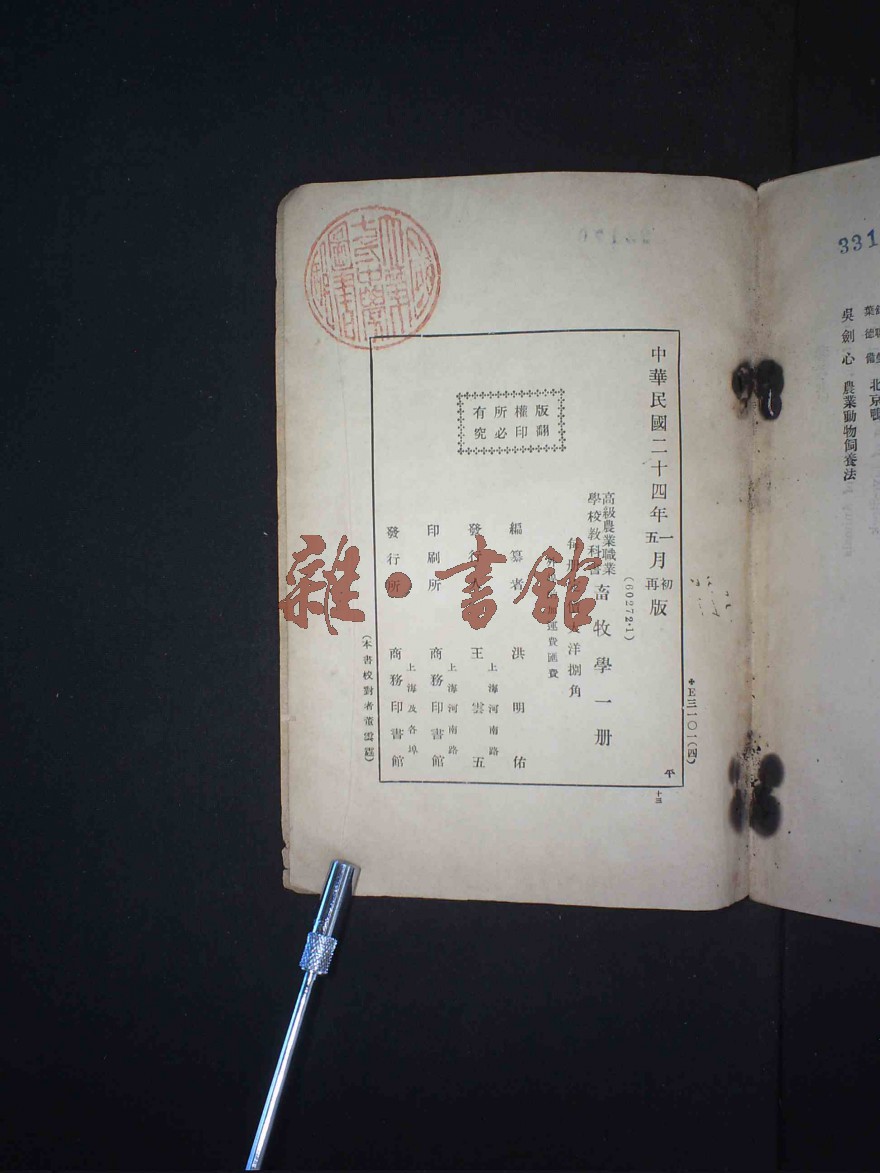 331
葉德備 北京鴨
吳劍心 農業動物飼養法
中華民國二十四年一月初版
五 再
版權所有
翻印必究
(60272·1)
高級農業職業
學校教科書 畜牧學一册
大洋捌角
運費匯費
編纂者 洪明佑
發行人 王雲五
上海河南路
印刷所 商務印書館
上海河南路
發行所 商務印書館
上海及各埠
(本書校對者董
E三一〇一(四)
平
雜·書館